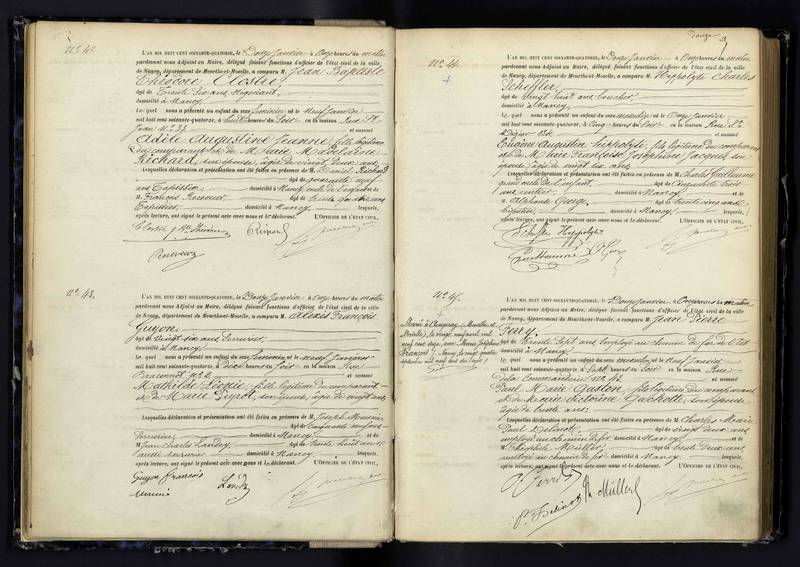 Nº 42.
L'AN MIL HUIT CENT SOIXANTE-QUATORZE, le Douze Janvier à Onze heures du matin
pardevant nous Adjoint au Maire, délégué faisant fonctions d'officier de l'état civil de la ville
de Nancy, département de Meurthe-et-Moselle, a comparu M. Jean Baptiste
Théodore Closter,
âgé de Trente Six ans, Négociant,
domicilié à Nancy,
Le quel nous a présenté un enfant du sexe féminin né le Neuf Janvier
mil huit cent soixante-quatorze, à huit heures du Soir en la maison Rue St
Jean Nº 37 et nommé
Adèle Augustine Jeanne, fille légitime
du comparant et de M. Marie Madeleine
Richard, son épouse, âgée de vingt deux ans
Lesquelles déclaration et présentation ont été faites en présence de M. Daniel Richard
âgé de quarante neuf
ans Tapissier domicilié à Nancy, oncle de l'enfant et de
M. François Renveux âgé de trente quatre ans
Tapissier domicilié à Nancy lesquels,
après lecture, ont signé le présent acte avec nous et le déclarant. L'OFFICIER DE L'ÉTAT CIVIL,
Renveux
Nº 43.
L'AN MIL HUIT CENT SOIXANTE-QUATORZE, le Douze Janvier à Onze heures du matin
pardevant nous Adjoint au Maire, délégué faisant fonctions d'officier de l'état civil de la ville
de Nancy, département de Meurthe-et-Moselle, a comparu M. Alexis François
Guyon,
âgé de vingt six ans Serrurier,
domicilié à Nancy,
Le quel nous a présenté un enfant du sexe féminin né le neuf Janvier
mil huit cent soixante-quatorze, à dix heures du Soir en la maison Rue
Braconnot nº 2 et nommé
Mathilde Léonie, fille légitime du comparant
et de Marie Guyot, son épouse, âgée de vingt ans
Lesquelles déclaration et présentation ont été faites en présence de M. Joseph
âgé de Cinquante neuf ans
Serrurier domicilié à Nancy et de
M. Jean Charles Landry âgé de trente huit ans
aussi serrurier domicilié à Nancy lesquels,
après lecture, ont signé le présent acte avec nous et le déclarant. L'OFFICIER DE L'ÉTAT CIVIL,
Guyon francois
Nº 44.
L'AN MIL HUIT CENT SOIXANTE-QUATORZE, le Douze Janvier à Onze heures du matin
pardevant nous Adjoint au Maire, délégué faisant fonctions d'officier de l'état civil de la ville
de Nancy, département de Meurthe-et-Moselle, a comparu M. Hippolyte Charles
Scheffler,
âgé de vingt huit ans, boucher
domicilié à Nancy,
Le quel nous a présenté un enfant du sexe masculin né le Onze Janvier
mil huit cent soixante-quatorze, à Cinq heures du Soir en la maison Rue St
Dizier 134 et nommé
Eugène Augustin Hippolyte, fils légitime du comparant
et de Marie Françoise Joséphine Jacquot, son
épouse, âgée de vingt six ans
Lesquelles déclaration et présentation ont été faites en présence de M. Charles Guillaume
grand oncle de l'enfant, âgé de Cinquante trois
ans rentier domicilié à Nancy et de
M. Alphonse George, âgé de trente cinq ans
Épicier domicilié à Nancy lesquels,
après lecture, ont signé le présent acte avec nous et le déclarant. L'OFFICIER DE L'ÉTAT CIVIL,
Scheffler Hippolyte
Guillaume
Nº 45.
L'AN MIL HUIT CENT SOIXANTE-QUATORZE, le Douze Janvier à Onze heures du matin
pardevant nous Adjoint au Maire, délégué faisant fonctions d'officier de l'état civil de la ville
de Nancy, département de Meurthe-et-Moselle, a comparu M. Jean Pierre
Ferry,
âgé de trente Sept ans, employé au chemin de fer de l'Est
domicilié à Nancy,
Le quel nous a présenté un enfant du sexe masculin né le Neuf Janvier
mil huit cent soixante-quatorze, à Sept heures du Soir en la maison Rue
de la Commanderie nº 42 et nommé
Paul Marie Gaston, fils légitime du comparant
et de Marie Victorine Gacholle, son épouse
âgée de trente ans
Lesquelles déclaration et présentation ont été faites en présence de M. Charles Marie
Paul Belinot âgé de vingt deux ans
employé au chemin de fer domicilié à Nancy et de
M. Théophile Müller, âgé de trente deux ans
employé au chemin de fer domicilié à Nancy lesquels,
après lecture, ont signé le présent acte avec nous et le déclarant. L'OFFICIER DE L'ÉTAT CIVIL,
P. Ferry
Th. Müller